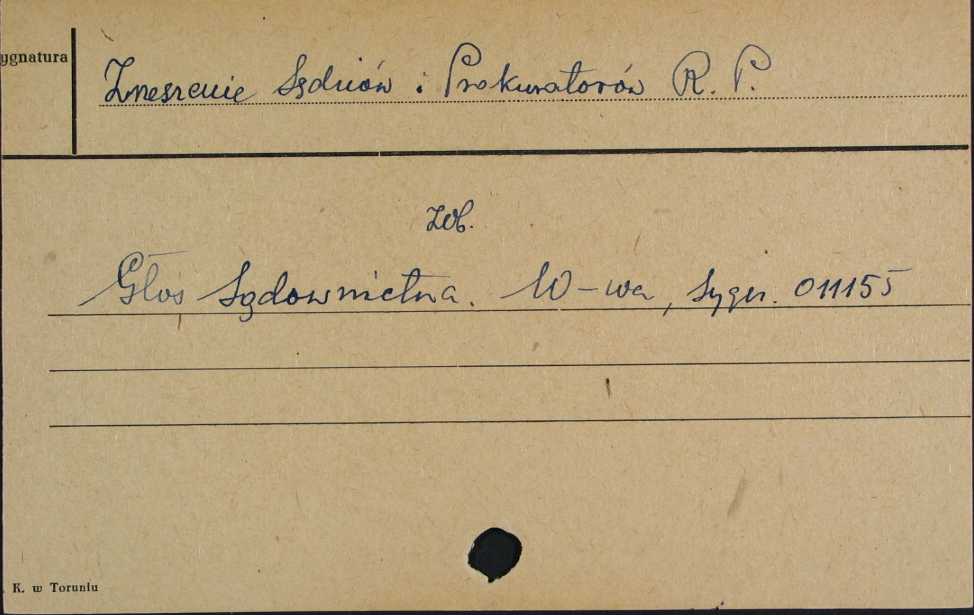 ygnatura
Zrzeszenie Sędziów i Prokuratorów R. P.
zob.
Głos Sądownictwa. W-wa, Sygn. 011155
K. w Toruniu